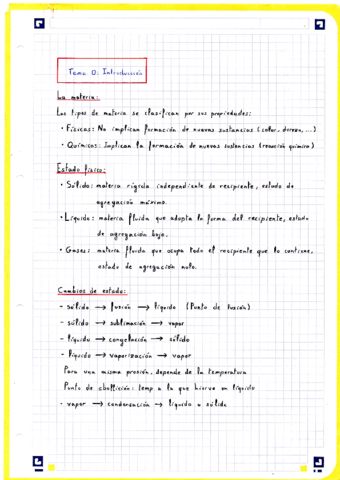 Tema 0: Introducción
La materia:
Los tipos de materia se clasifican por sus propiedades:
· Físicas: No implican formación de nuevas sustancias (color, dureza, ...)
· Químicas: Implican la formación de nuevas sustancias (reacción química)
Estado físico:
· Sólido: materia rígida independiente de recipiente, estado de
agregación máximo.
· Líquido: materia fluida que adopta la forma del recipiente, estado
de agregación bajo.
· Gases: materia fluida que ocupa todo el recipiente que lo contiene,
estado de agregación nulo.
Cambios de estado:
- sólido → fusión → líquido (Punto de fusión)
- sólido → sublimación → vapor
- líquido → congelación → sólido
- líquido → vaporización → vapor
Para una misma presión, depende de la temperatura
Punto de ebullición: temp a la que hierve un líquido
- vapor → condensación → líquido o sólido